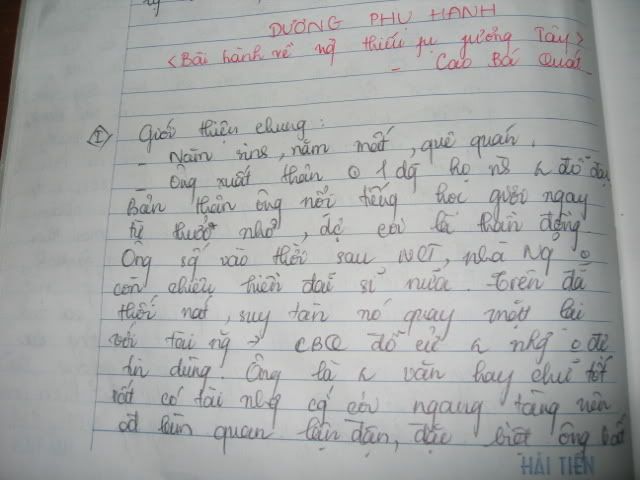 DƯƠNG PHỤ HÀNH
<Bài hành về ng thiếu phụ phương Tây>
- Cao Bá Quát
I Giới thiệu chung:
- Năm sinh, năm mất, quê quán.
- Ông xuất thân 1 dg họ n đỗ đạt
Bản thân ông nổi tiếng học giỏi ngay
từ thuở nhỏ, đc coi là thần đồng
Ông sg vào thời sau NCT, nhà Ng
còn chiêu hiền đãi sĩ nữa. trên đà
thối nát, suy tàn nó quay mặt lại
với tài ng → CBQ đỗ cử n nhg o đc
tin dùng. Ông là n văn hay chữ tốt
rất có tài nhg cg có ngang tàng nên
làm quan lận đận, đặc biệt ông bất
HẢI TIẾN